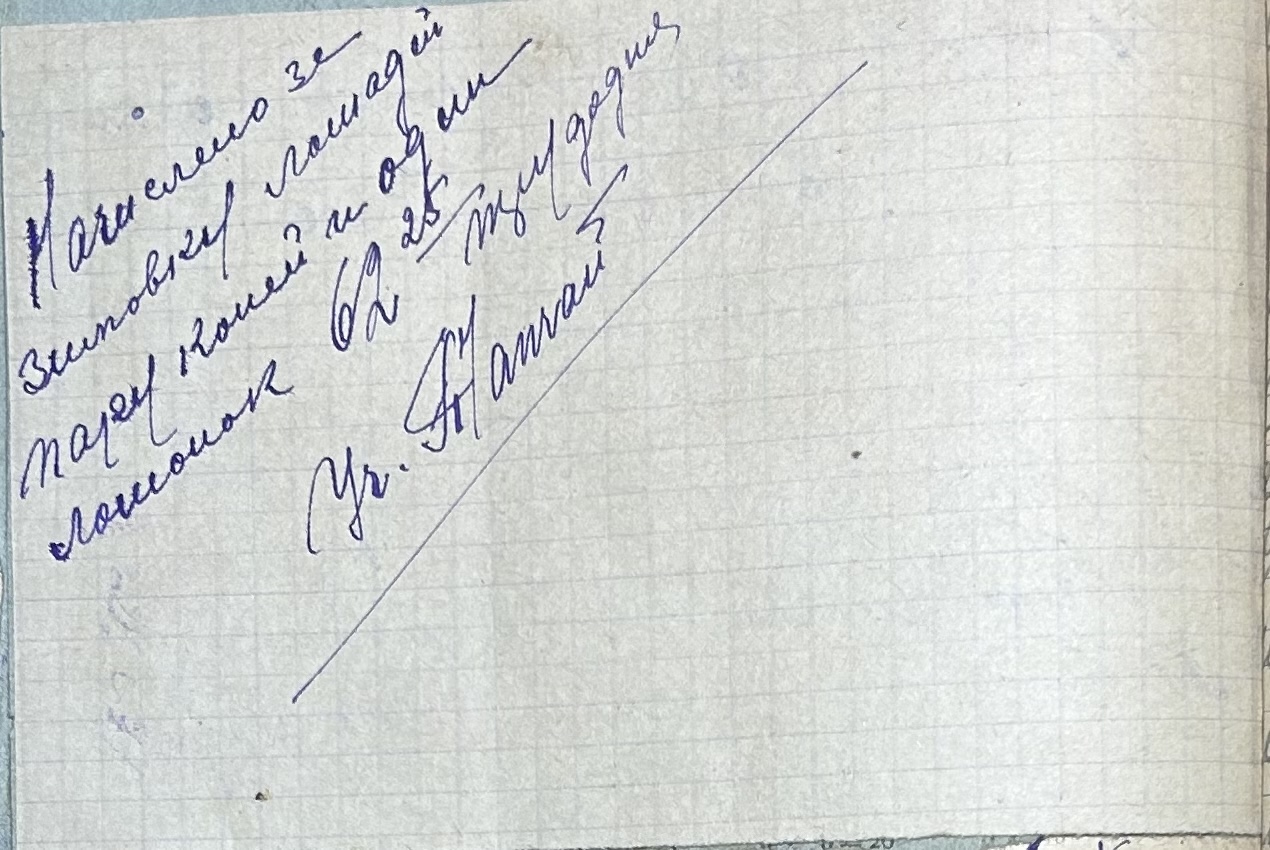 Начислено за
зимовку лошадей
пару коней и один
лошонок 62 25 трудодня
Уч.